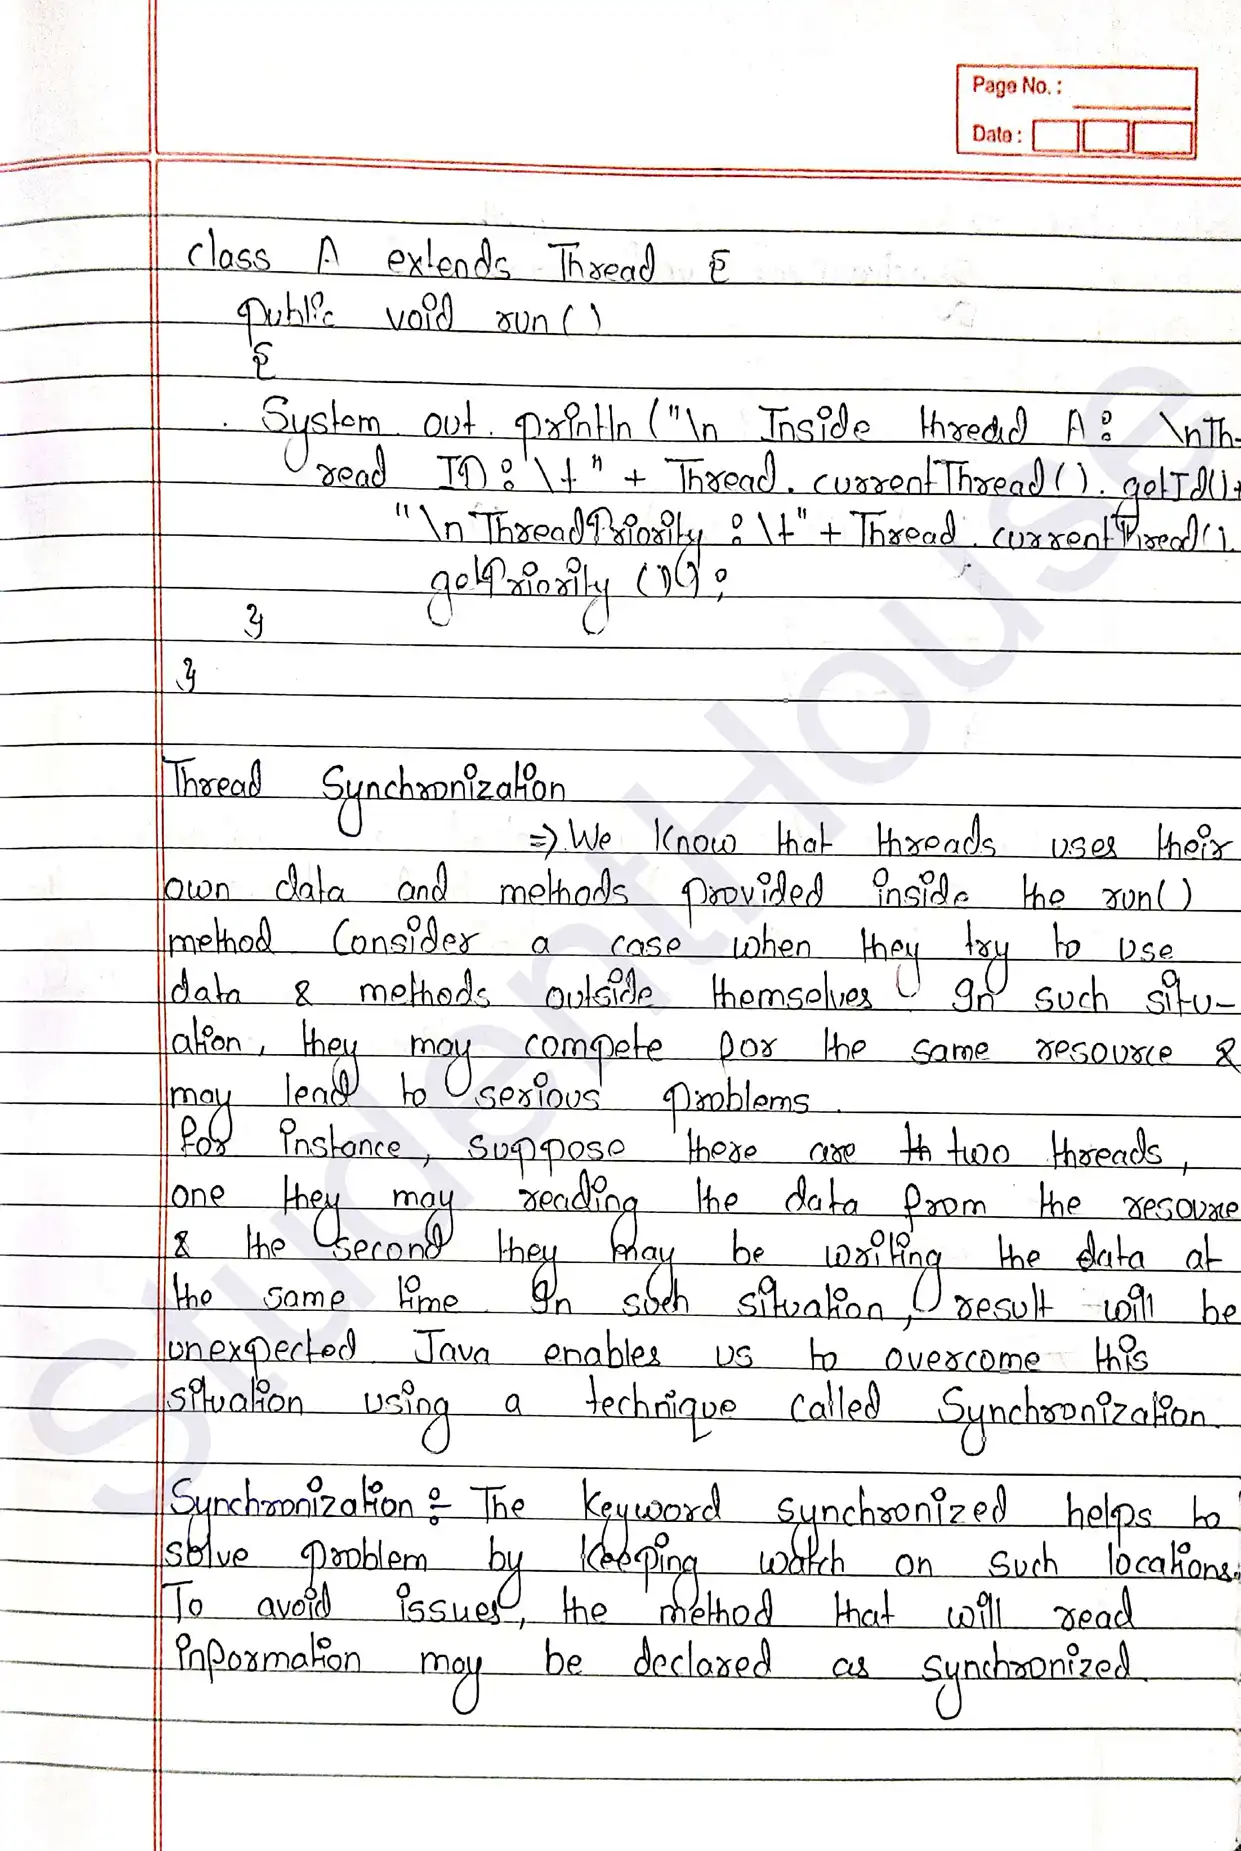 Page No. :
Date :
class A extends Thread {
public void run()
{
System out. println("\n Inside thread A: \nTh-
read ID: \t" + Thread. currentThread(). getId()+
"\n ThreadPriority : \t" + Thread. currentThread().
getPriority ());
}
}
Thread Synchronization
=> We know that threads uses their
own data and methods provided inside the run()
method Consider a case when they try to use
data & methods outside themselves In such situ-
ation, they may compete for the same resource &
may lead to serious problems.
for instance, suppose there are th two threads,
one they may reading the data from the resource
& the second they may be writing the data at
the same time. In such situation, result will be
unexpected. Java enables us to overcome this
situation using a technique called Synchronization.
Synchronization :- The keyword synchronized helps to
solve problem by keeping watch on such locations.
To avoid issues, the method that will read
information may be declared as synchronized.
StudentHouse